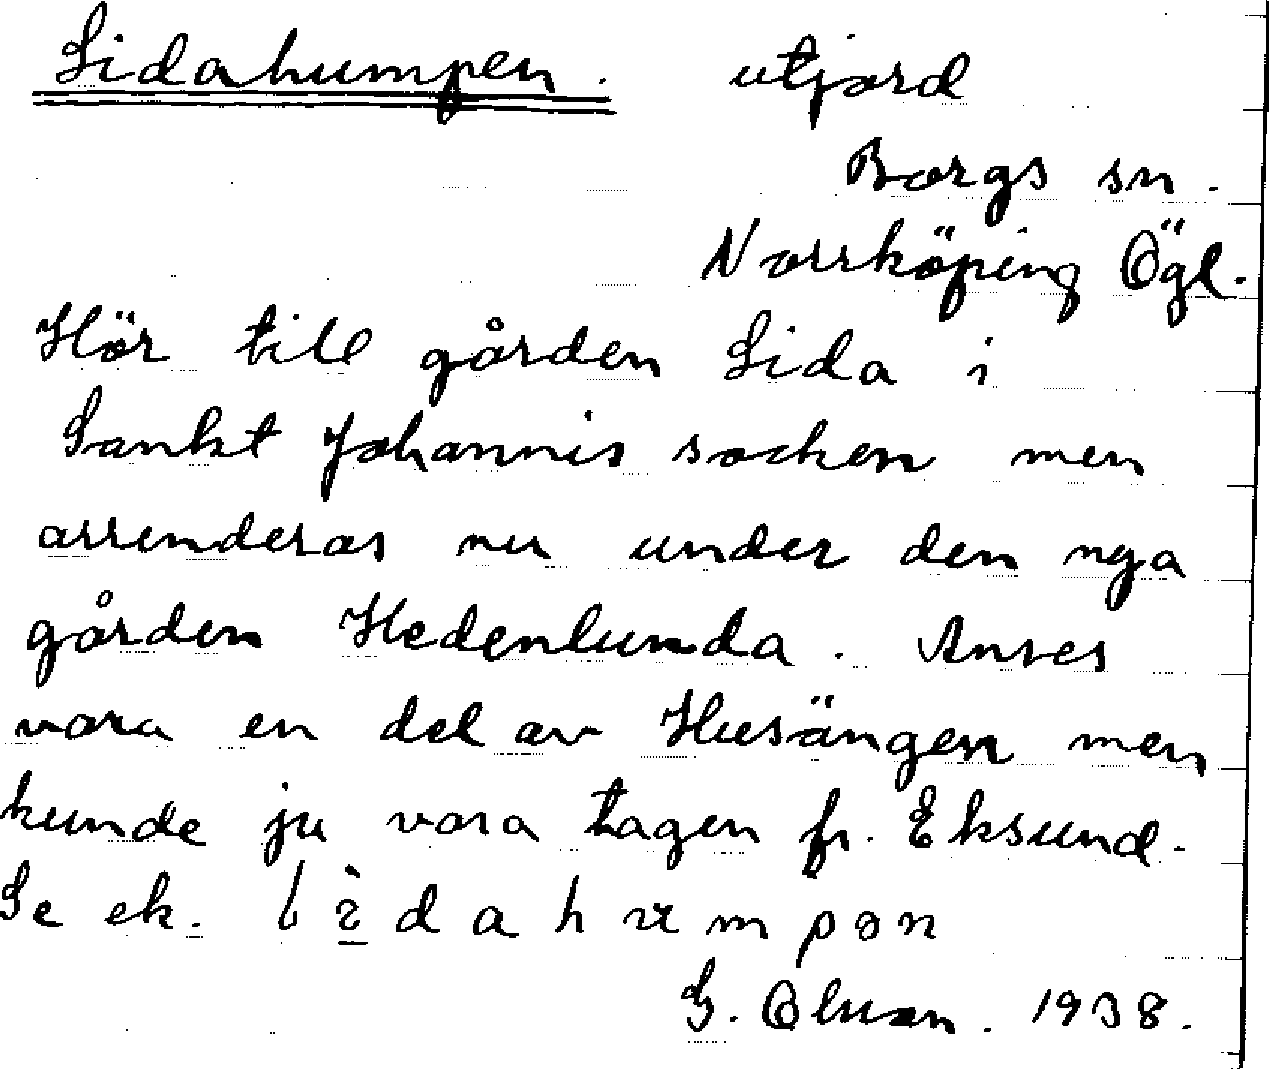 Lidahumpen. utjord
Borgs sn.
Norrköping Ögl.
Hör till gården Lida i
Sankt Johannis socken men
arrenderas nu under den nya
gården Hedenlunda. Anses
vara en del av Husängen men
kunde ju vara tagen fr. Eksund.
Se ek. l ì d a h u m p ə n
G. 1938.